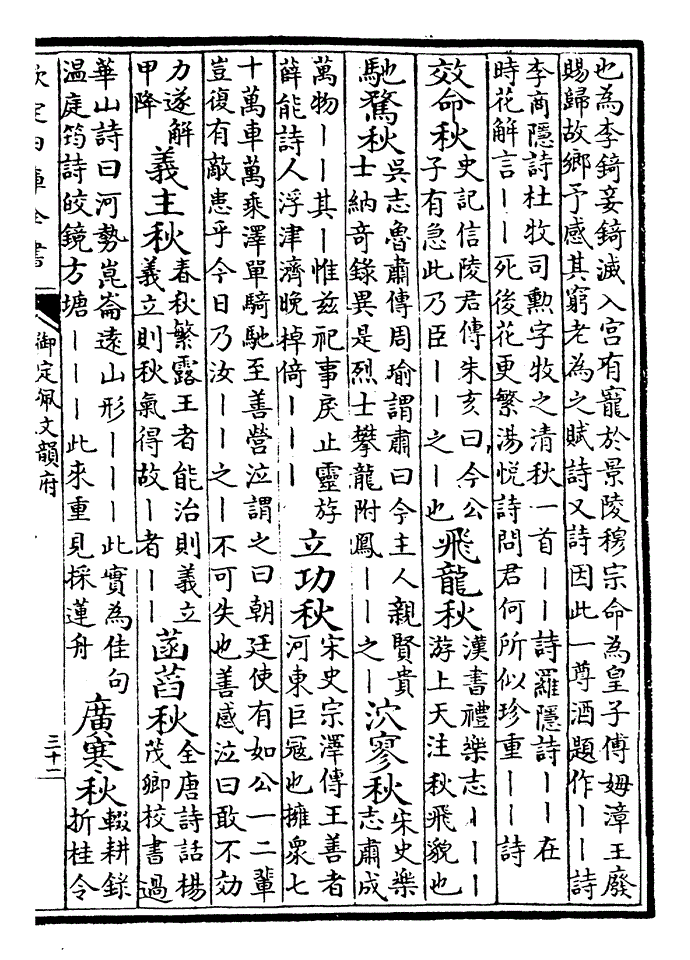 也為李錡妾錡滅入宮有寵於景陵穆宗命為皇子傅姆漳王廢
賜歸故鄉予感其窮老為之賦詩又詩因此一尊酒題作丨丨詩
李商隱詩杜牧司勲字牧之清秋一首丨丨詩羅隱詩丨丨在
時花解言丨丨死後花更繁湯悦詩問君何所似珍重丨丨詩
效命秋
史記信陵君傳朱亥曰今公
子有急此乃臣丨丨之丨也
飛龍秋
漢書禮樂志丨丨丨
游上天注秋飛貌也
馳騖秋
吳志魯肅傳周瑜謂肅曰今主人親賢貴
士納奇錄異是烈士攀龍附鳳丨丨之丨
泬寥秋
宋史樂
志肅成
萬物丨丨其丨惟兹祀事戾止靈游
薛能詩人浮津濟晚棹倚丨丨丨
立功秋
宋史宗澤傳王善者
河東巨冦也擁衆七
十萬車萬乘澤單騎馳至善營泣謂之曰朝廷使有如公一二輩
豈復有敵患乎今日乃汝丨丨之丨不可失也善感泣曰敢不効
力遂解
甲降
義主秋
春秋繁露王者能治則義立
義立則秋氣得故丨者丨丨
菡萏秋
全唐詩話楊
茂卿校書過
華山詩曰河勢崑崙遠山形丨丨丨此實為佳句
温庭筠詩皎鏡方塘丨丨丨此來重見採蓮舟
廣寒秋
輟耕錄
折桂令
欽定四庫全書
御定佩文韻府
三十二